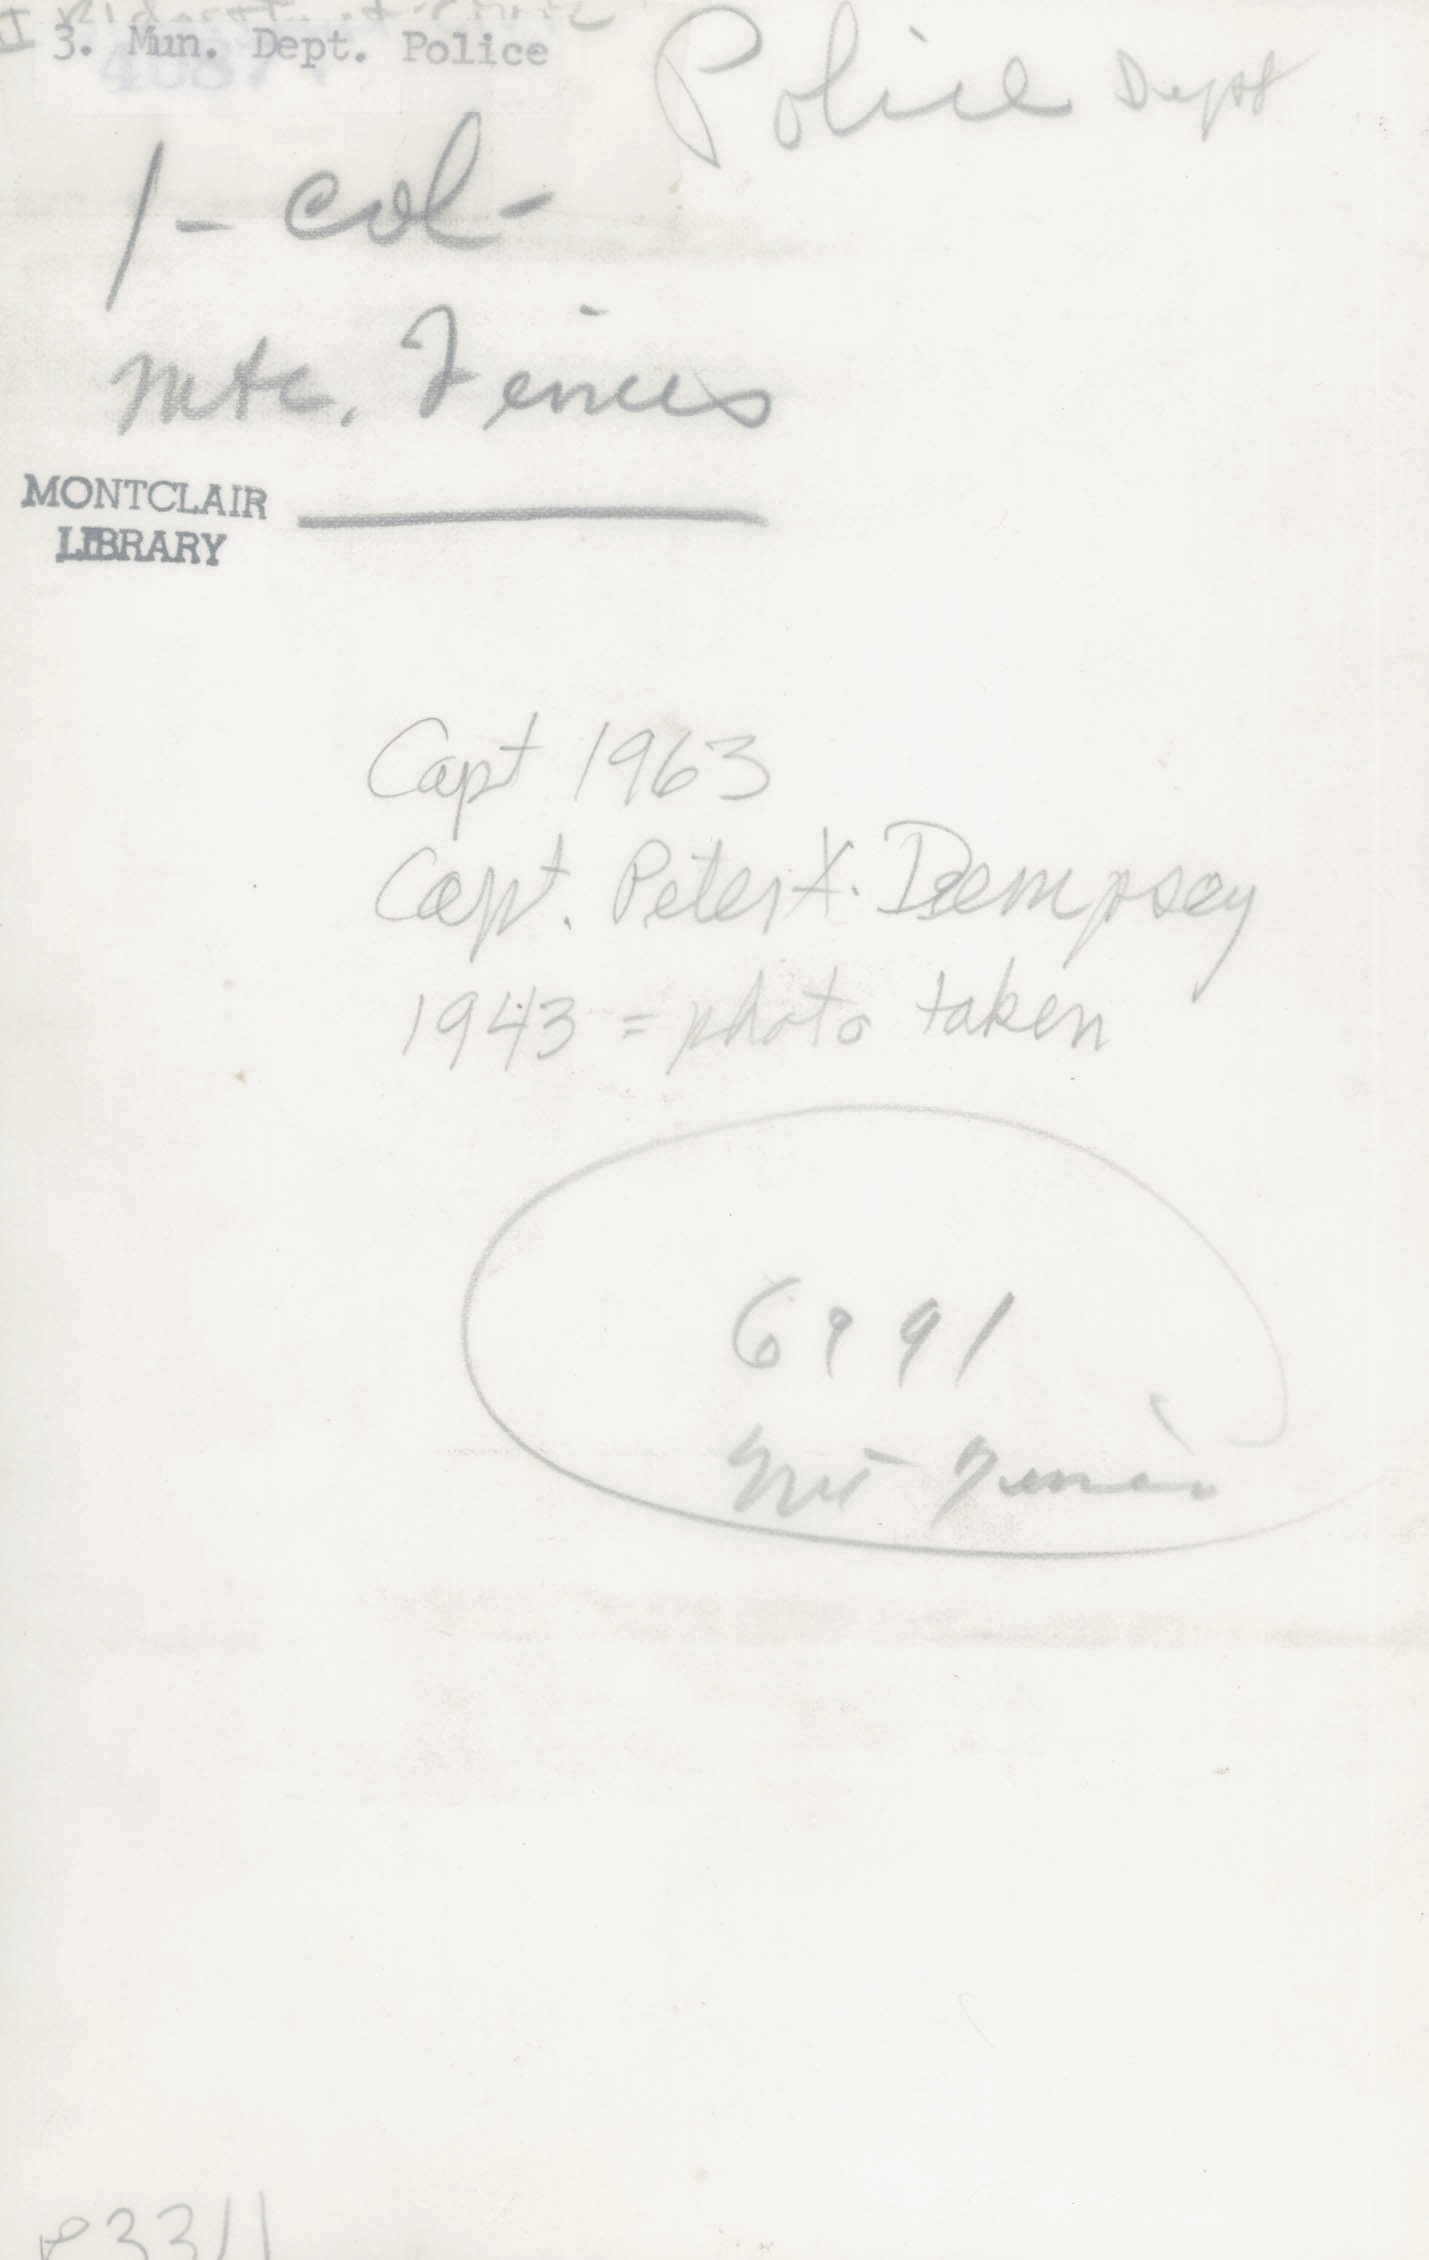 3. Mun. Dept. Police
Police Dept
1 - col -
Mtc. Times
MONTCLAIR
LIBRARY
Capt 1963
Capt. Peter X. Dempsey
1943 = photo taken
6991
Mt Times
P3311